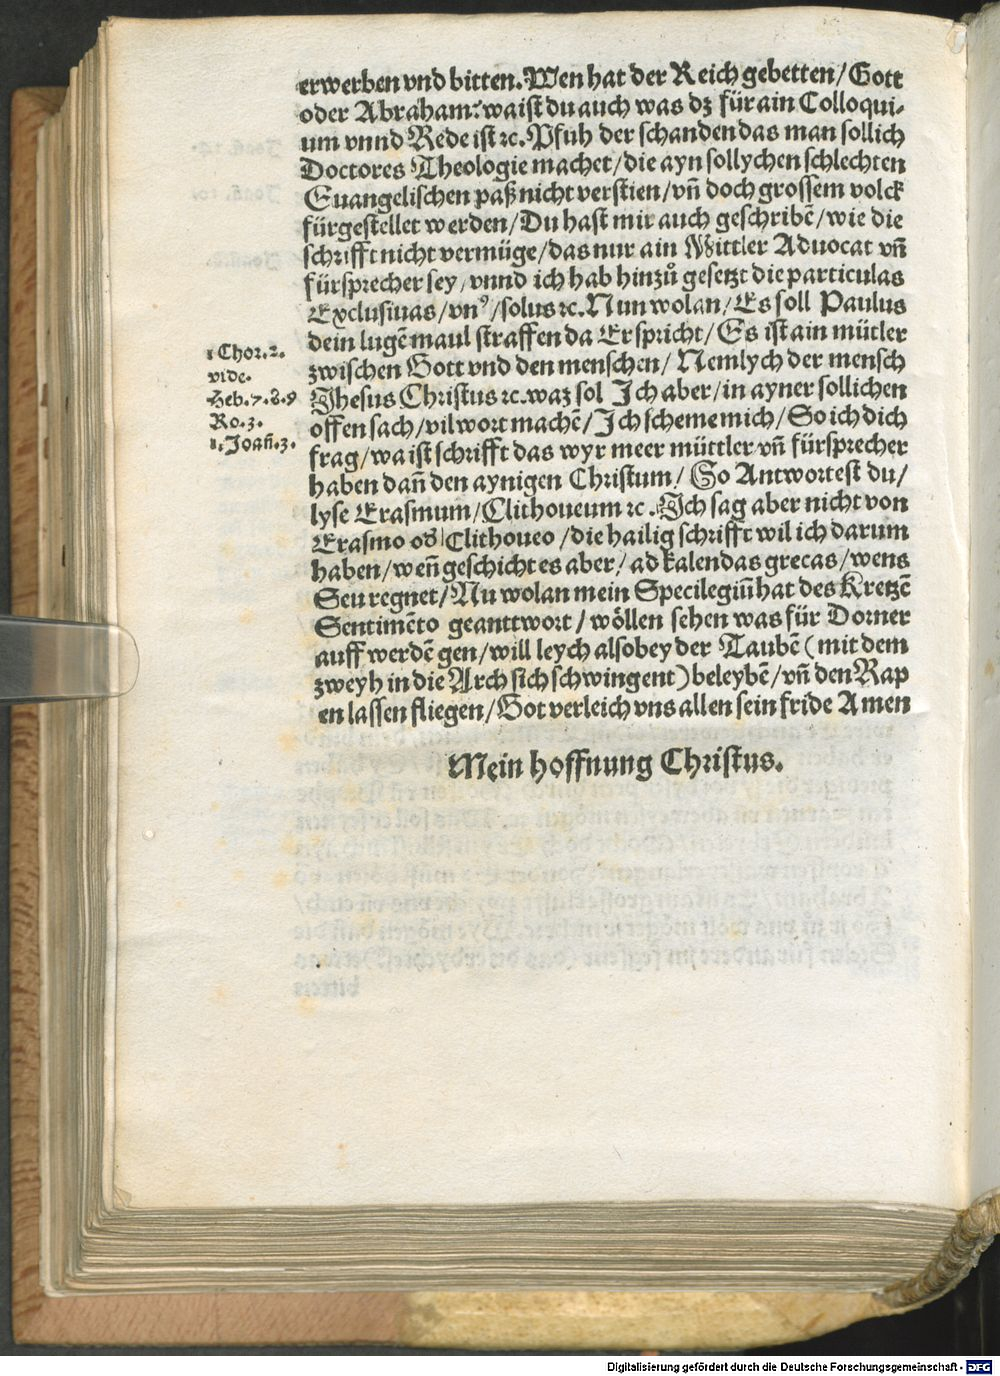 erwerben vnd bitten. Wen hat der Reich gebetten/ Gott
oder Abraham? waist du auch was dz für ain Colloqui-
um vnnd Rede ist ꝛc. Pfuh der schanden das man sollich
Doctores Theologie machet/ die ayn sollychen schlechten
Euangelischen paß nicht verstien/ vn̄ doch grossem volck
fürgestellet werden/ Du hast mir auch geschribē/ wie die
schrifft nicht vermüge/ das nur ain Mittler Aduocat vn̄
fürsprecher sey/ vnnd ich hab hinzů gesetzt die particulas
Exclusiuas/ vnꝰ/ solus ꝛc. Nun wolan/ Es soll Paulus
dein lugē maul straffen da Er spricht/ Es ist ain mütler
zwischen Gott vnd den menschen/ Nemlych der mensch
Jhesus Christus ꝛc. waz sol Ich aber/ in ayner sollichen
offen sach/ vil wort machē/ Ich scheme mich/ So ich dich
frag/ wa ist schrifft das wyr meer müttler vn̄ fürsprecher
haben dan̄ den aynigen Christum/ So Antwortest du/
lyse Erasmum/ Clithoueum ꝛc. Ich sag aber nicht von
Erasmo od' Clithoueo/ die hailig schrifft wil ich darum
haben/ wen̄ geschicht es aber/ ad kalendas grecas/ wens
Seu regnet/ Nu wolan mein Specilegiū hat des Kretzē
Sentimēto geanttwort/ wöllen sehen was für Dorner
auff werdē gen/ will leych also bey der Taubē (mit dem
zweyh in die Arch sich schwingent) beleybē/ vn̄ den Rap
en lassen fliegen/ Got verleich vns allen sein fride Amen
Mein hoffnung Christus.
1 Chor. 2.
vide.
Heb. 7. 8. 9
Ro. 3.
1. Joan̄. 3.
Digitalisierung gefördert durch die Deutsche Forschungsgemeinschaft - DFG